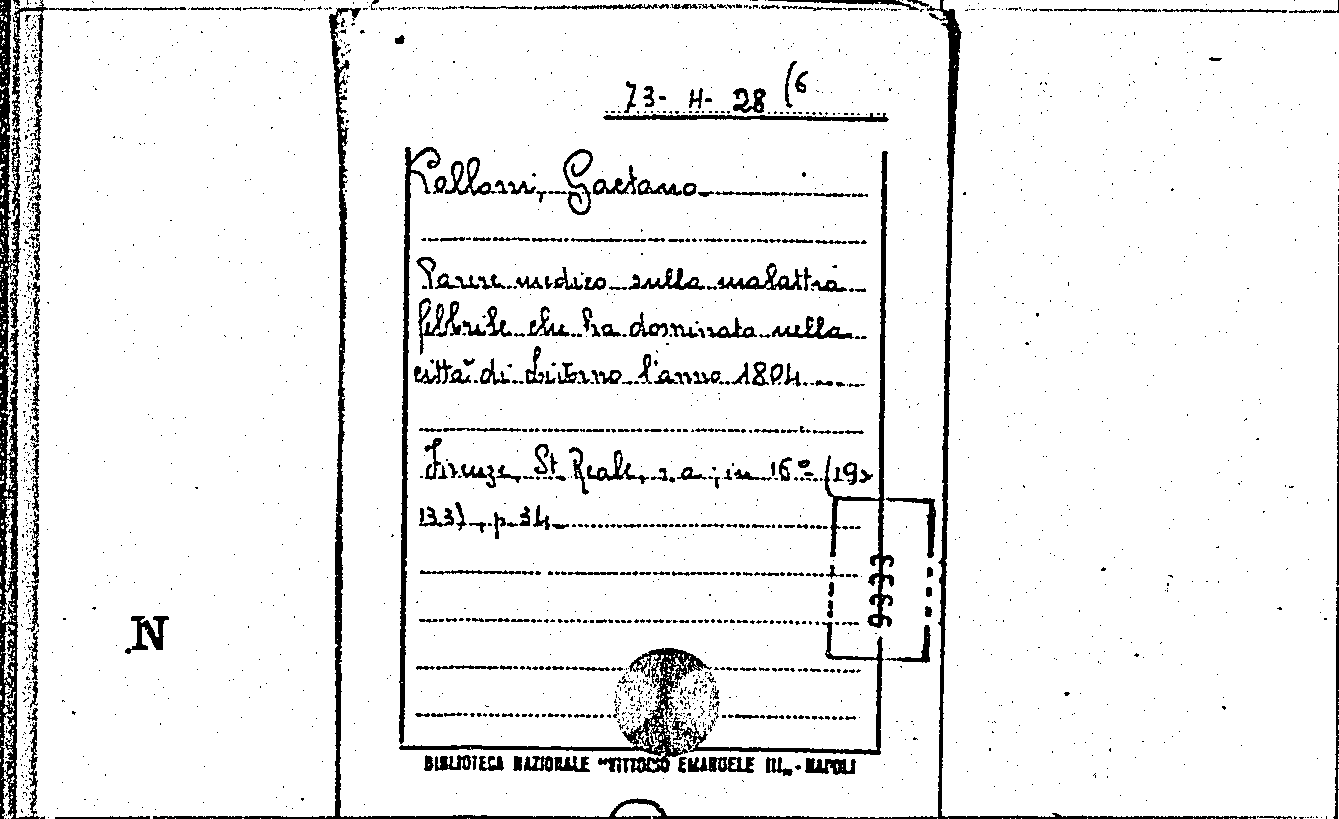 73- H- 28 (6
Palloni, Gaetano
Parere medico sulla malattia
febbrile che ha dominata nella
città di Livorno l'anno 1804
Firenze, St. Reale, s. a; in 16° (19×
13.3), p. 34
9333
N
BIBLIOTECA NAZIONALE "VITTORIO EMANUELE III„ - NAPOLI